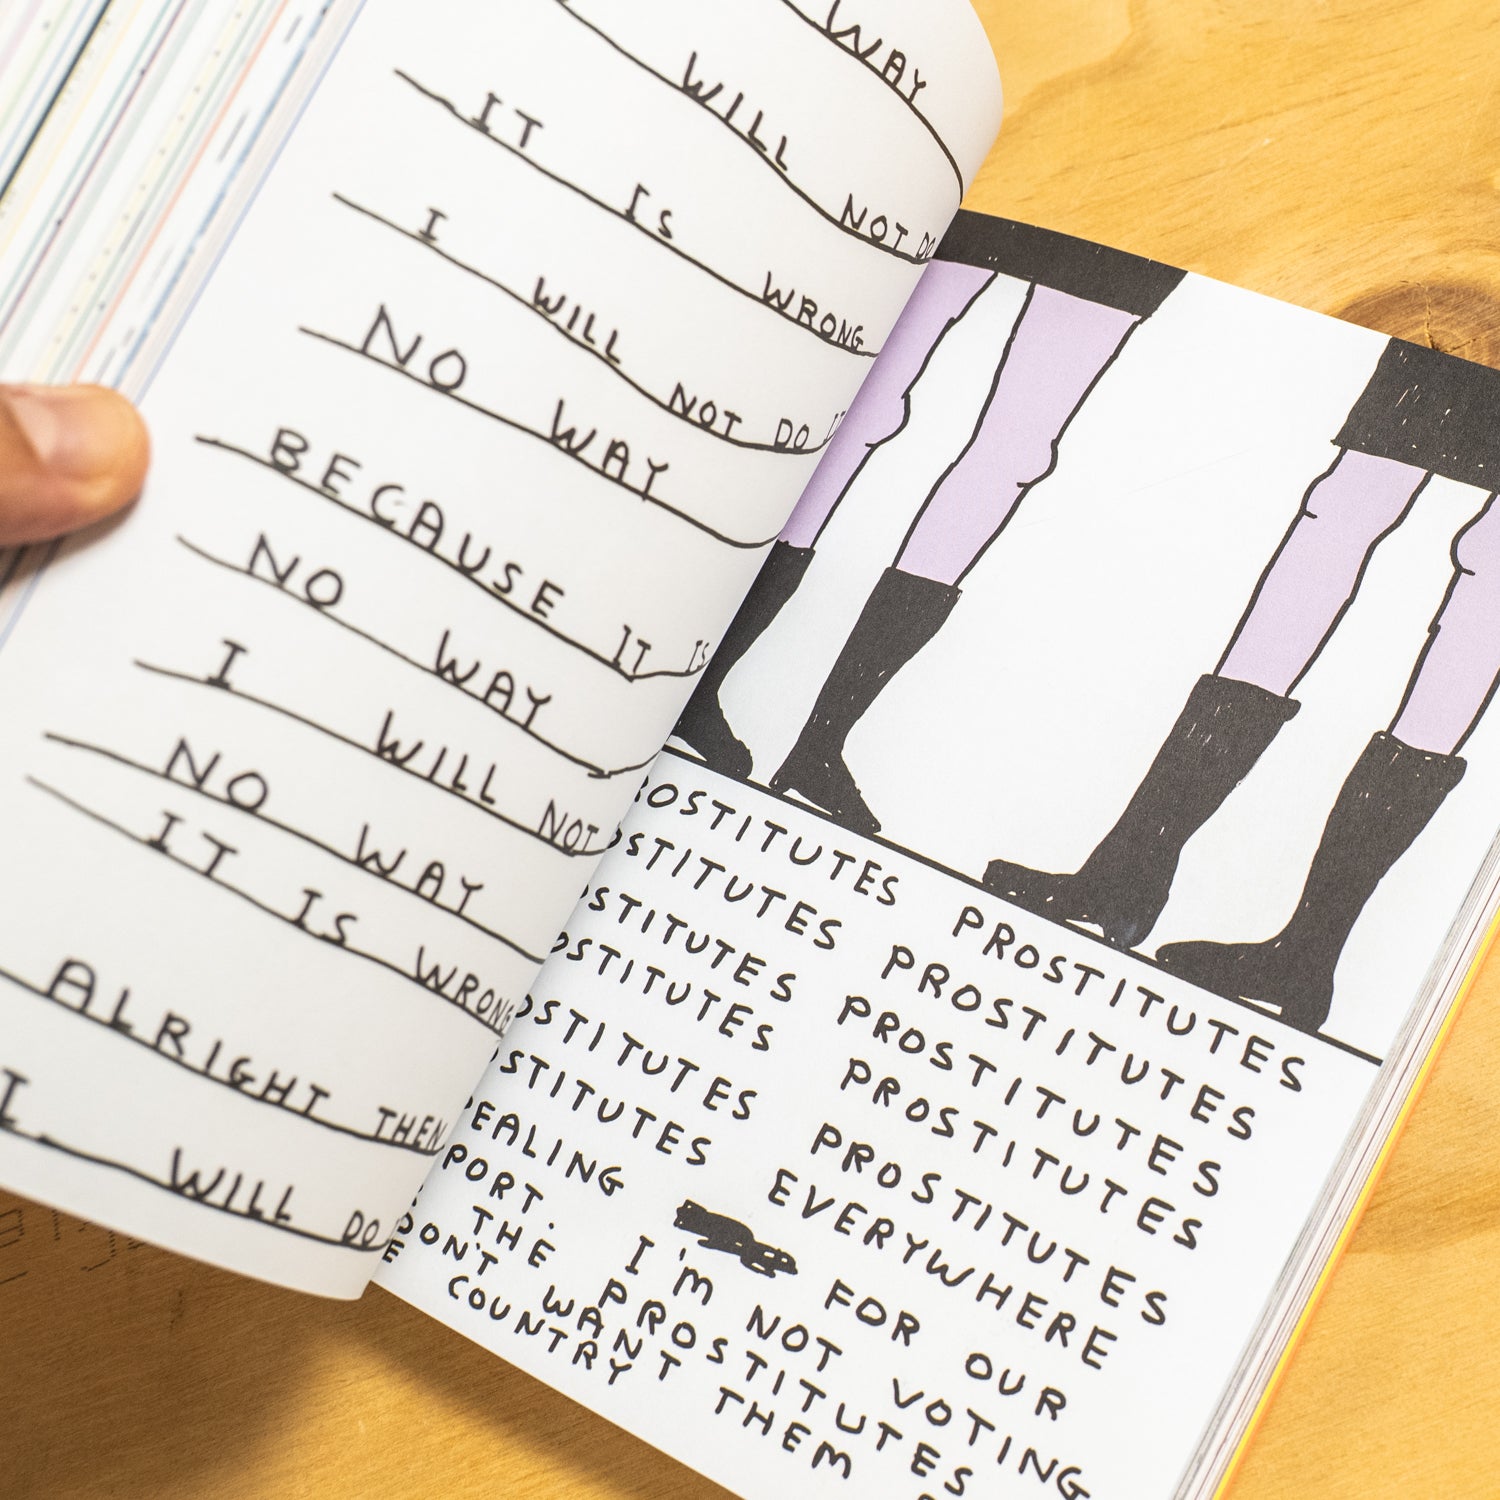 WAY
WILL NOT DO
IT IS WRONG
I WILL NOT DO
NO WAY
BECAUSE IT IS
NO WAY
I WILL NOT
NO WAY
IT IS WRONG
ALRIGHT THEN
I WILL DO
ROSTITUTES PROSTITUTES
OSTITUTES PROSTITUTES
OSTITUTES PROSTITUTES
OSTITUTES PROSTITUTES
OSTITUTES PROSTITUTES
OSTITUTES EVERYWHERE
EALING FOR OUR
PORT. I'M NOT VOTING
THE PROSTITUTES
DON'T WANT THEM
COUNTRY